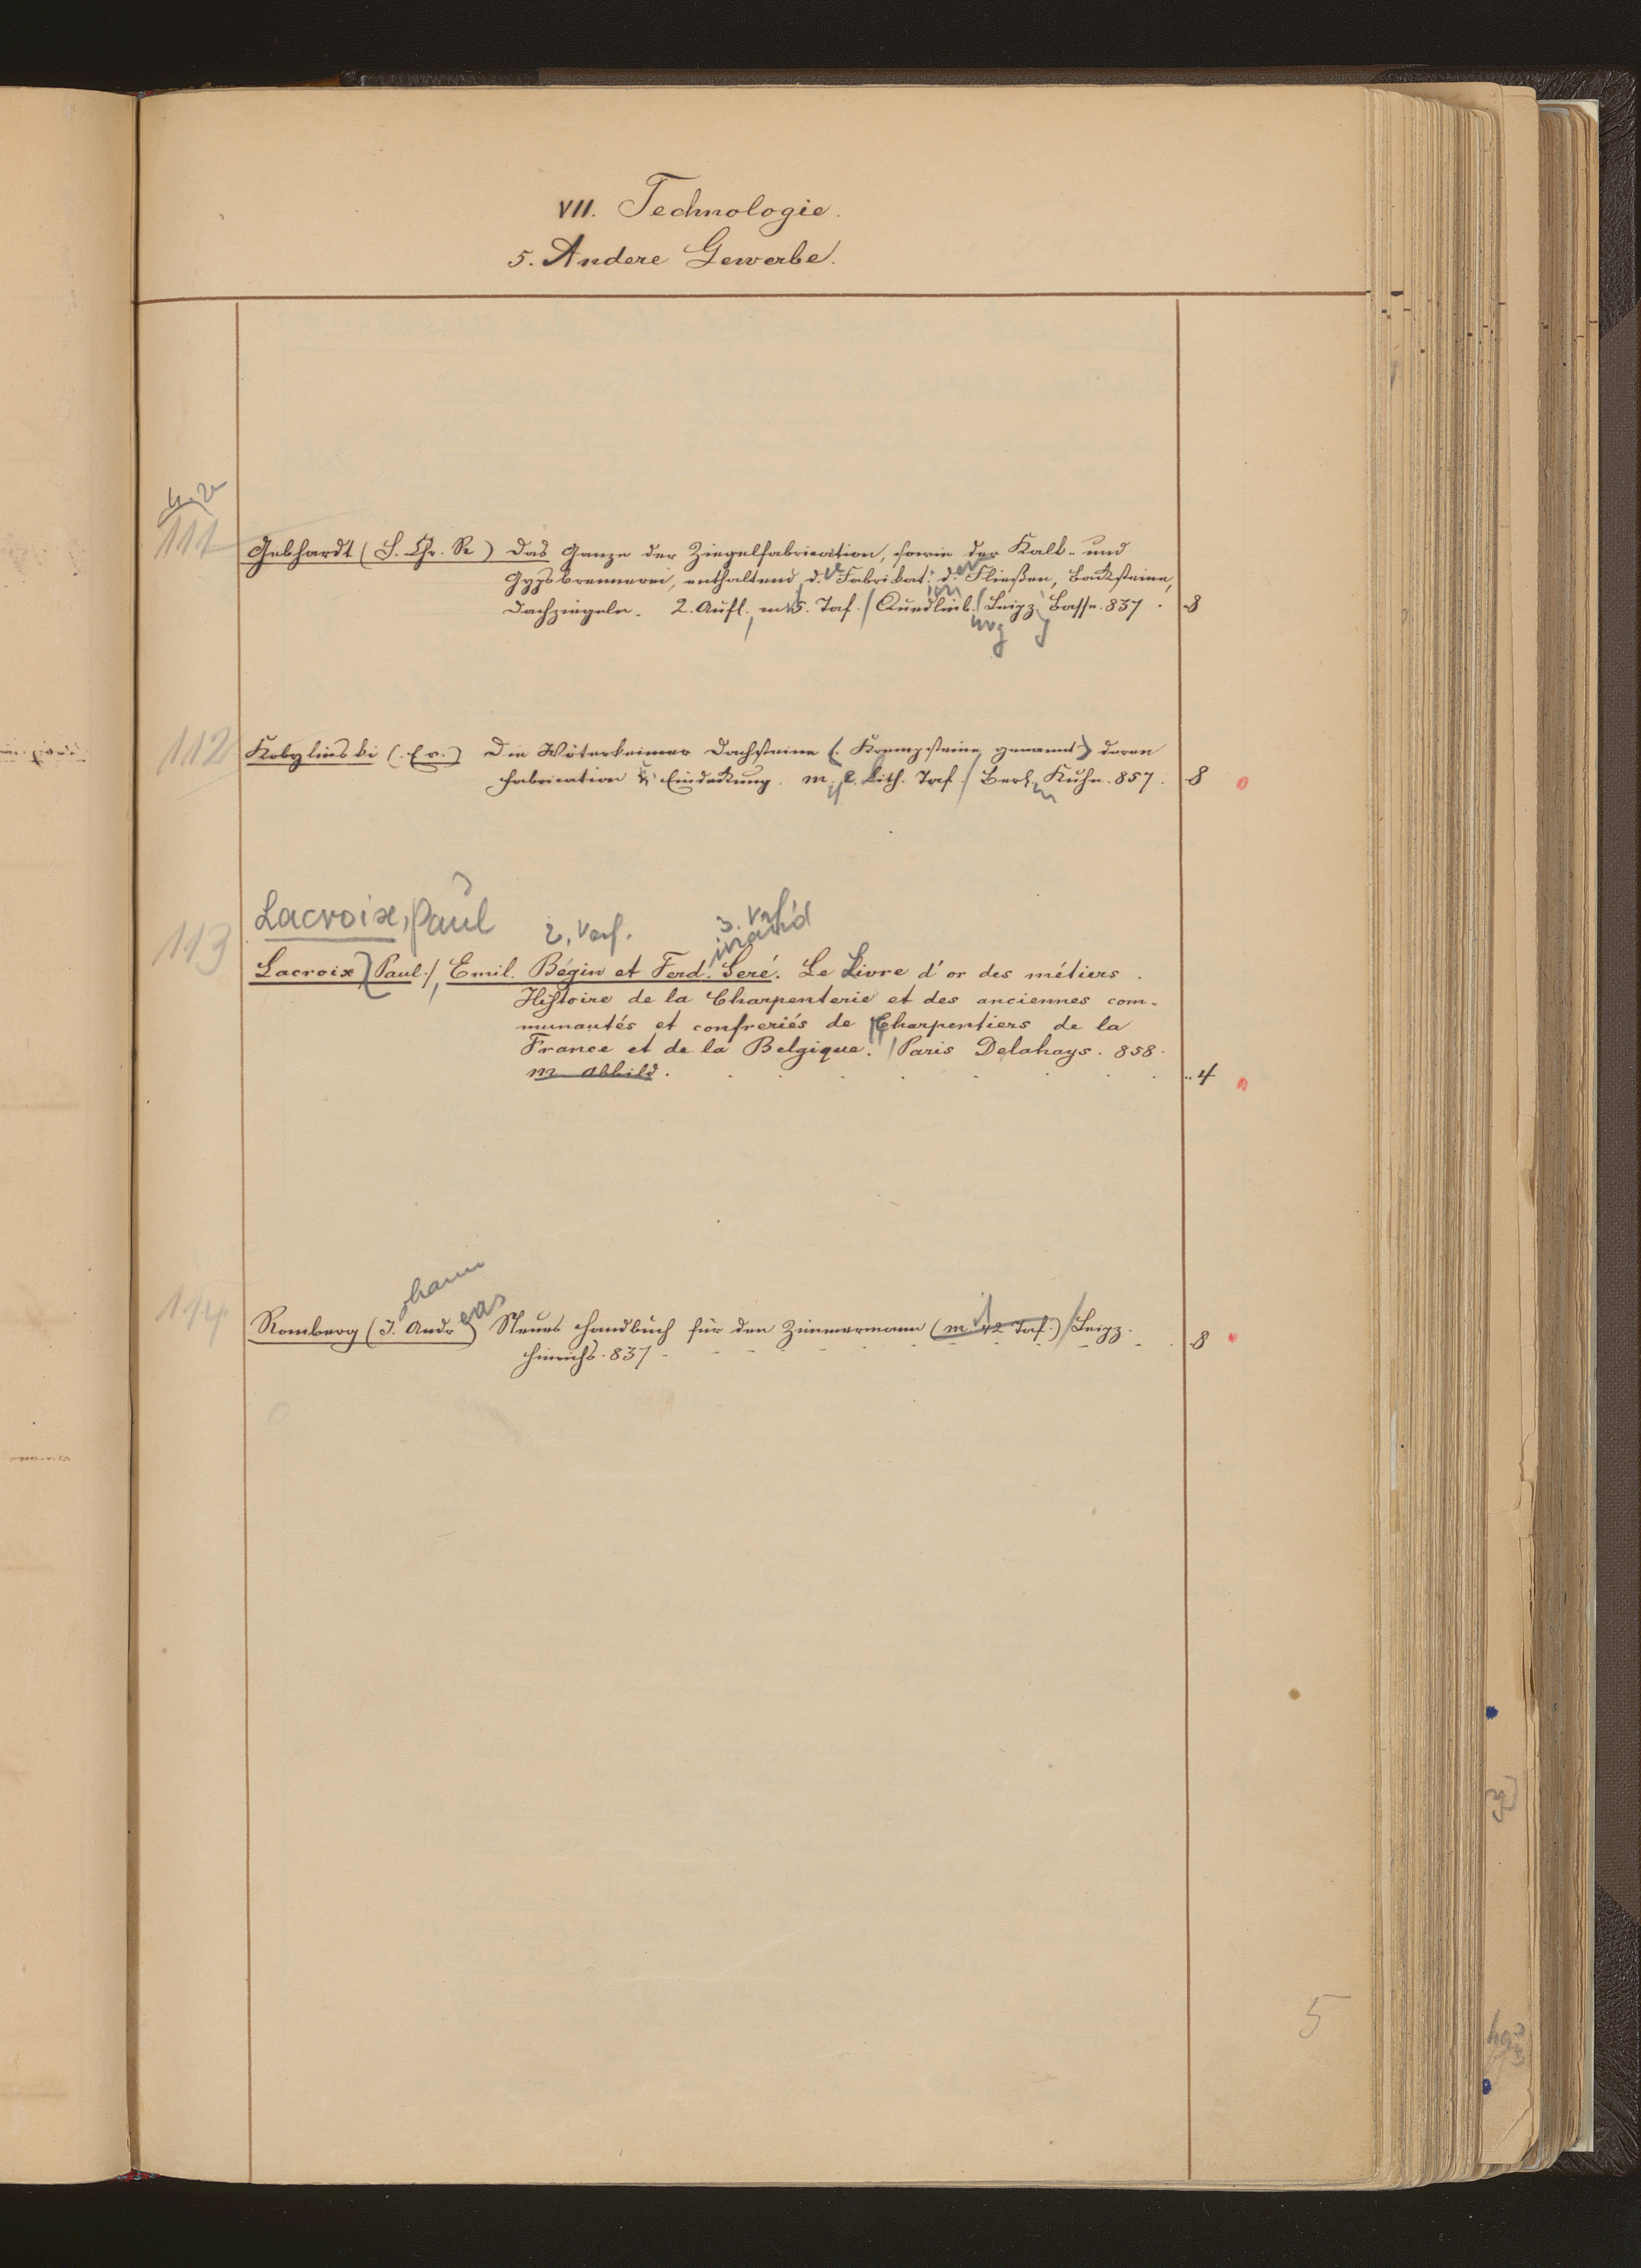 VII. Technologie.
5. Andere Gewerbe.
111
Gebhardt (S. Chr. R) Das Ganze der Ziegelfabrication, sowie der Kalk- und
Gypsbrennerei, enthaltend d. Fabrikat. d. Fließen, Backsteine,
Dachziegeln. 2. Aufl. m. 5. Taf. / Quedlinb. / Leipz. Basse. 837. 8
112
Kobylinski (E. v.) Die Wöterkeimer Dachsteine (Krempsteine genannt) deren
Fabrication & Eindeckung. m. 2. Lith. Taf. / Berl. Kuhn. 857. 8
Lacroix, Paul
2. Verf. 3. Verf.
inand
113
Lacroix, Paul /, Emil. Bégin et Ferd. Seré. Le Livre d'or des métiers.
Histoire de la Charpenterie et des anciennes com-
munautés et confreriés de Charpentiers de la
France et de la Belgique. / Paris Delahays. 858.
m Abbild. 4
ohann
114
Romberg (J. Andreas) Neues Handbuch für den Zimmermann (m. 42 Taf.) / Leipz.
Hinrichs. 837 8
5